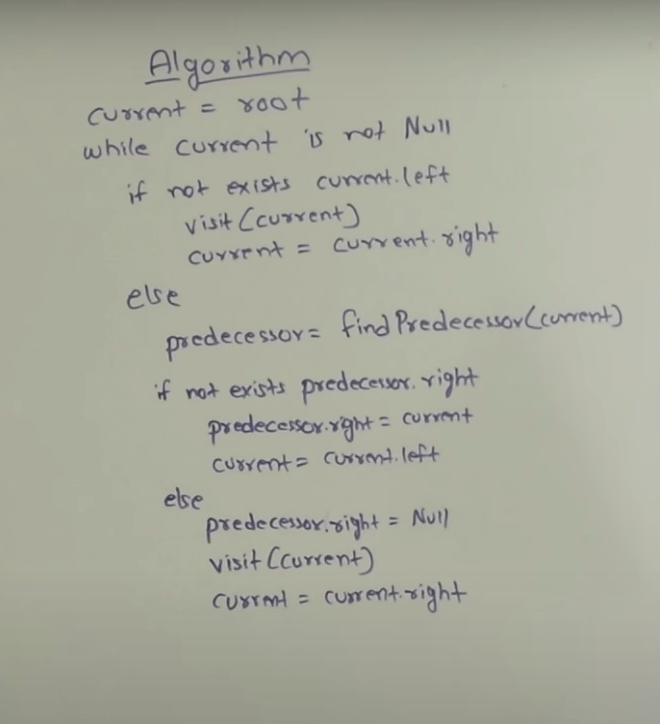 Algorithm
current = root
while current is not Null
if not exists current.left
visit (current)
current = current.right
else
predecessor = findPredecessor(current)
if not exists predecessor.right
predecessor.right = current
current = current.left
else
predecessor.right = Null
visit (current)
current = current.right